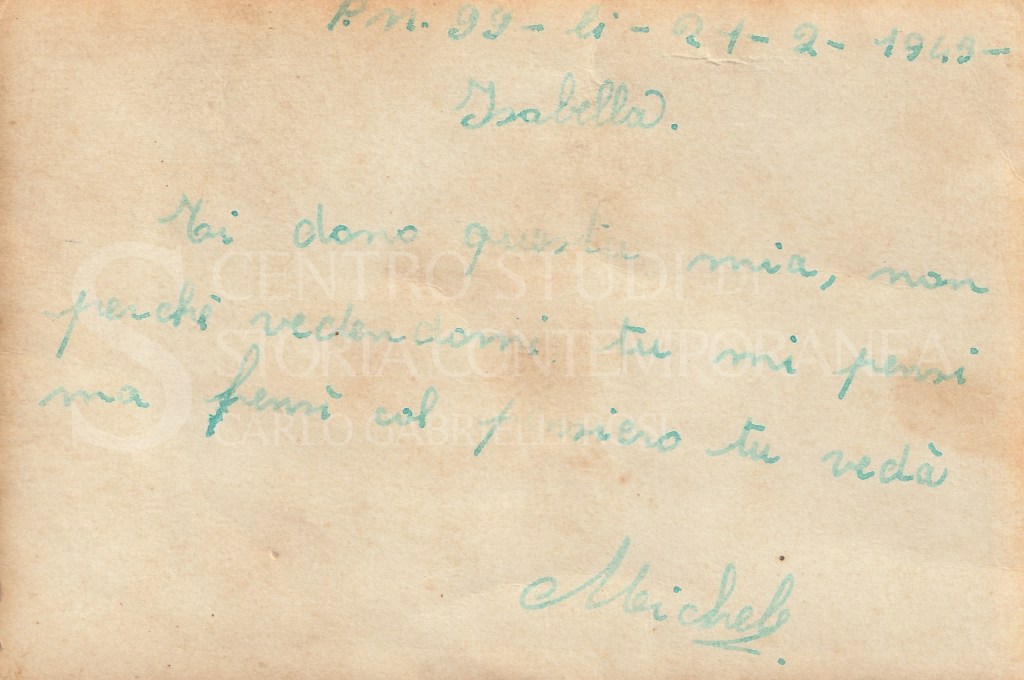 P. m. 99 - li - 21 - 2 - 1943 -
Isabella.
Ti dono questa mia, non
perchè vedendomi tu mi pensi
ma pensì col pensiero tu vedà
Michele.
CENTRO STUDI DI
STORIA CONTEMPORANEA
CARLO GABRIELLI ROSI